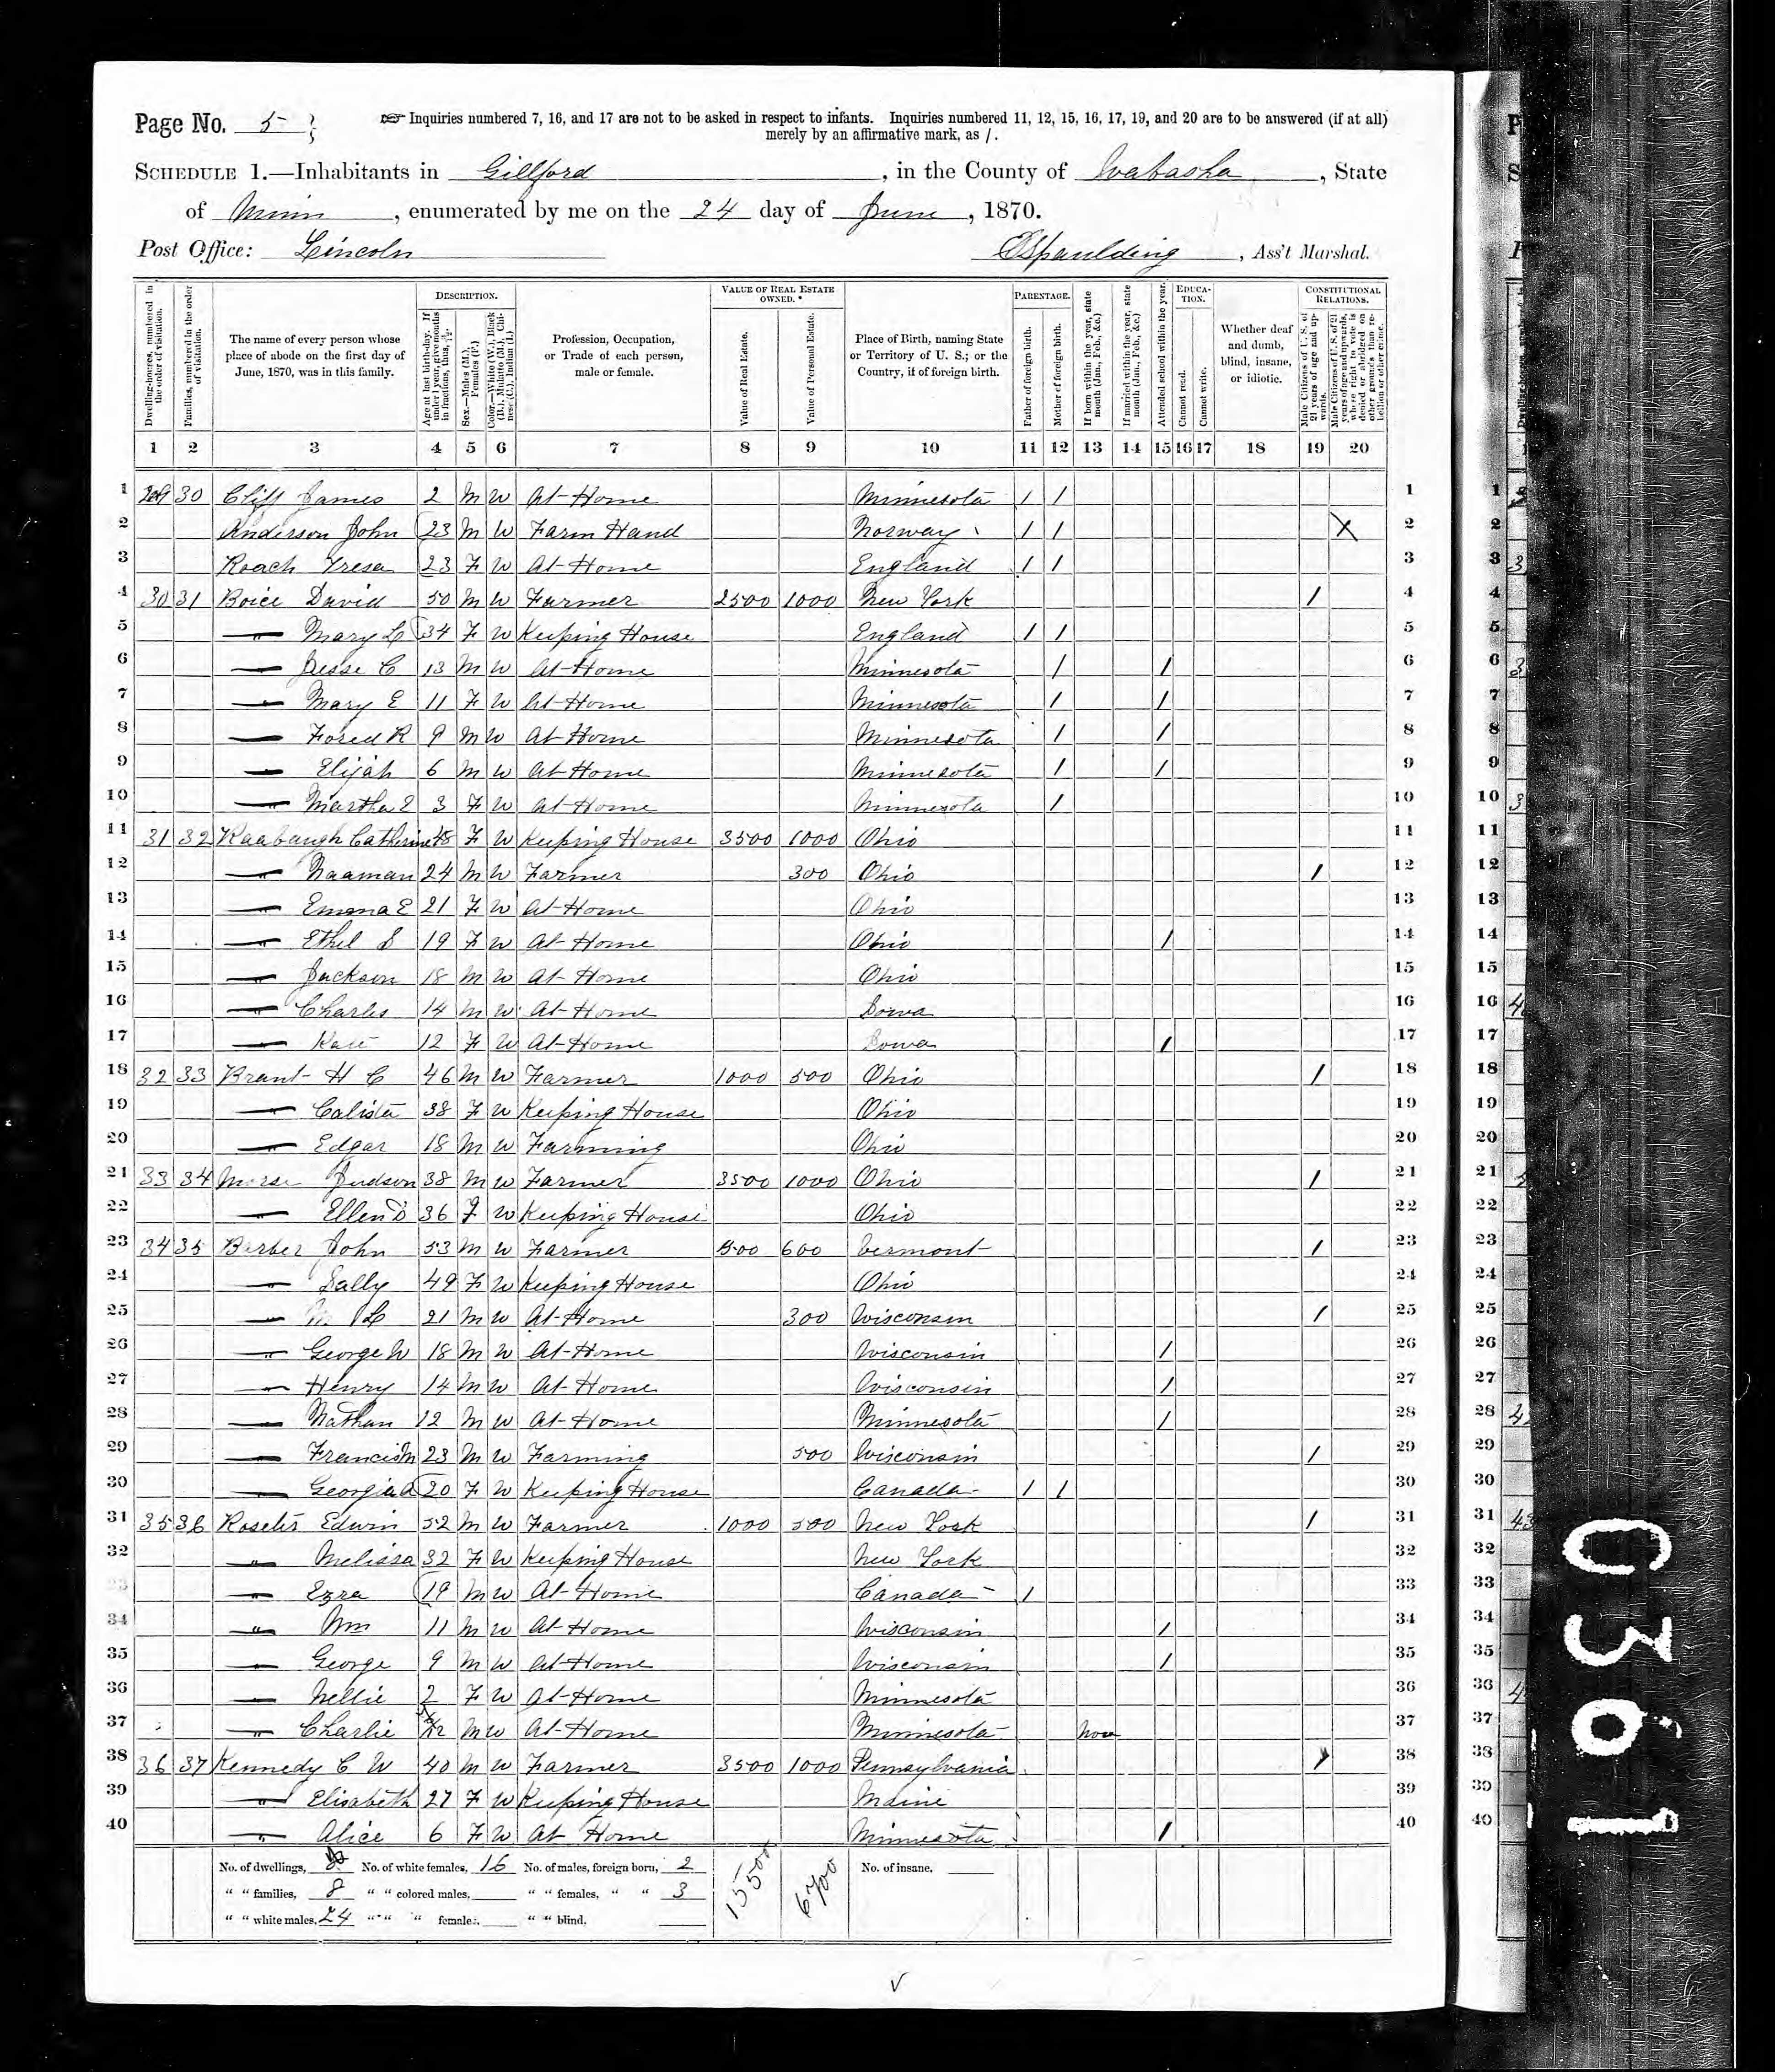 Page No. 5
Inquiries numbered 7, 16, and 17 are not to be asked in respect to infants. Inquiries numbered 11, 12, 15, 16, 17, 19, and 20 are to be answered (if at all)
merely by an affirmative mark, as /.
SCHEDULE 1.—Inhabitants in Gillford, in the County of Wabasha, State
of Minn, enumerated by me on the 24 day of June, 1870.
Post Office: Lincoln Spaulding, Ass't Marshal.
Dwelling-houses, numbered in the order of visitation.
Families, numbered in the order of visitation.
The name of every person whose place of abode on the first day of June, 1870, was in this family.
DESCRIPTION.
Age at last birth-day. If under 1 year, give months in fractions, thus, 3/12.
Sex.—Males (M.), Females (F.)
Color.—White (W.), Black (B.), Mulatto (M.), Chinese (C.), Indian (I.)
Profession, Occupation, or Trade of each person, male or female.
VALUE OF REAL ESTATE OWNED.*
Value of Real Estate.
Value of Personal Estate.
Place of Birth, naming State or Territory of U. S.; or the Country, if of foreign birth.
PARENTAGE.
Father of foreign birth.
Mother of foreign birth.
If born within the year, state month (Jan., Feb., &c.)
If married within the year, state month (Jan., Feb., &c.)
Attended school within the year.
EDUCATION.
Cannot read.
Cannot write.
Whether deaf and dumb, blind, insane, or idiotic.
CONSTITUTIONAL RELATIONS.
Male Citizens of U. S. of 21 years of age and upwards.
Male Citizens of U. S. of 21 years of age and upwards, whose right to vote is denied or abridged on other grounds than rebellion or other crime.
1 2 3 4 5 6 7 8 9 10 11 12 13 14 15 16 17 18 19 20
1 29 30 Cliff James 2 M W At Home Minnesota / / 1
2 Anderson John 23 M W Farm Hand Norway / / X 2
3 Roach Tresa 23 F W At Home England / / 3
4 30 31 Boice David 50 M W Farmer 2500 1000 New York / 4
5 — Mary L 34 F W Keeping House England / / 5
6 — Jesse C 13 M W At Home Minnesota / / 6
7 — Mary E 11 F W At Home Minnesota / / 7
8 — Fored R 9 M W At Home Minnesota / / 8
9 — Elijah 6 M W At Home Minnesota / / 9
10 — Martha E 3 F W At Home Minnesota / 10
11 31 32 Raabaugh Catherine 48 F W Keeping House 3500 1000 Ohio 11
12 — Naaman 24 M W Farmer 300 Ohio / 12
13 — Emma E 21 F W At Home Ohio 13
14 — Ethel S 19 F W At Home Ohio / 14
15 — Jackson 18 M W At Home Ohio 15
16 — Charles 14 M W At Home Iowa 16
17 — Kate 12 F W At Home Iowa / 17
18 32 33 Brant H C 46 M W Farmer 1000 500 Ohio / 18
19 — Calista 38 F W Keeping House Ohio 19
20 — Edgar 18 M W Farming Ohio 20
21 33 34 Morse Judson 38 M W Farmer 3500 1000 Ohio / 21
22 — Ellen D 36 F W Keeping House Ohio 22
23 34 35 Barber John 53 M W Farmer 500 600 Vermont / 23
24 — Sally 49 F W Keeping House Ohio 24
25 — M L 21 M W At Home 300 Wisconsin / 25
26 — George W 18 M W At Home Wisconsin / 26
27 — Henry 14 M W At Home Wisconsin / 27
28 — Nathan 12 M W At Home Minnesota / 28
29 — Francis M 23 M W Farming 500 Wisconsin / 29
30 — Georgia A 20 F W Keeping House Canada / / 30
31 35 36 Edwin 52 M W Farmer 1000 500 New York / 31
32 — Melissa 32 F W Keeping House New York 32
33 — Ezra 19 M W At Home Canada / 33
34 — Wm 11 M W At Home Wisconsin / 34
35 — George 9 M W At Home Wisconsin / 35
36 — Nellie 2 F W At Home Minnesota 36
37 — Charlie /12 M W At Home Minnesota Nov 37
38 36 37 Kennedy C W 40 M W Farmer 3500 1000 Pennsylvania / 38
39 — Elisabeth 27 F W Keeping House Maine 39
40 — Alice 6 F W At Home Minnesota / 40
No. of dwellings, 8 No. of white females, 16 No. of males, foreign born, 2 15500 6700 No. of insane,
" " families, 8 " " colored males, " " females, " " 3
" " white males, 24 " " " females, " " blind,
0391